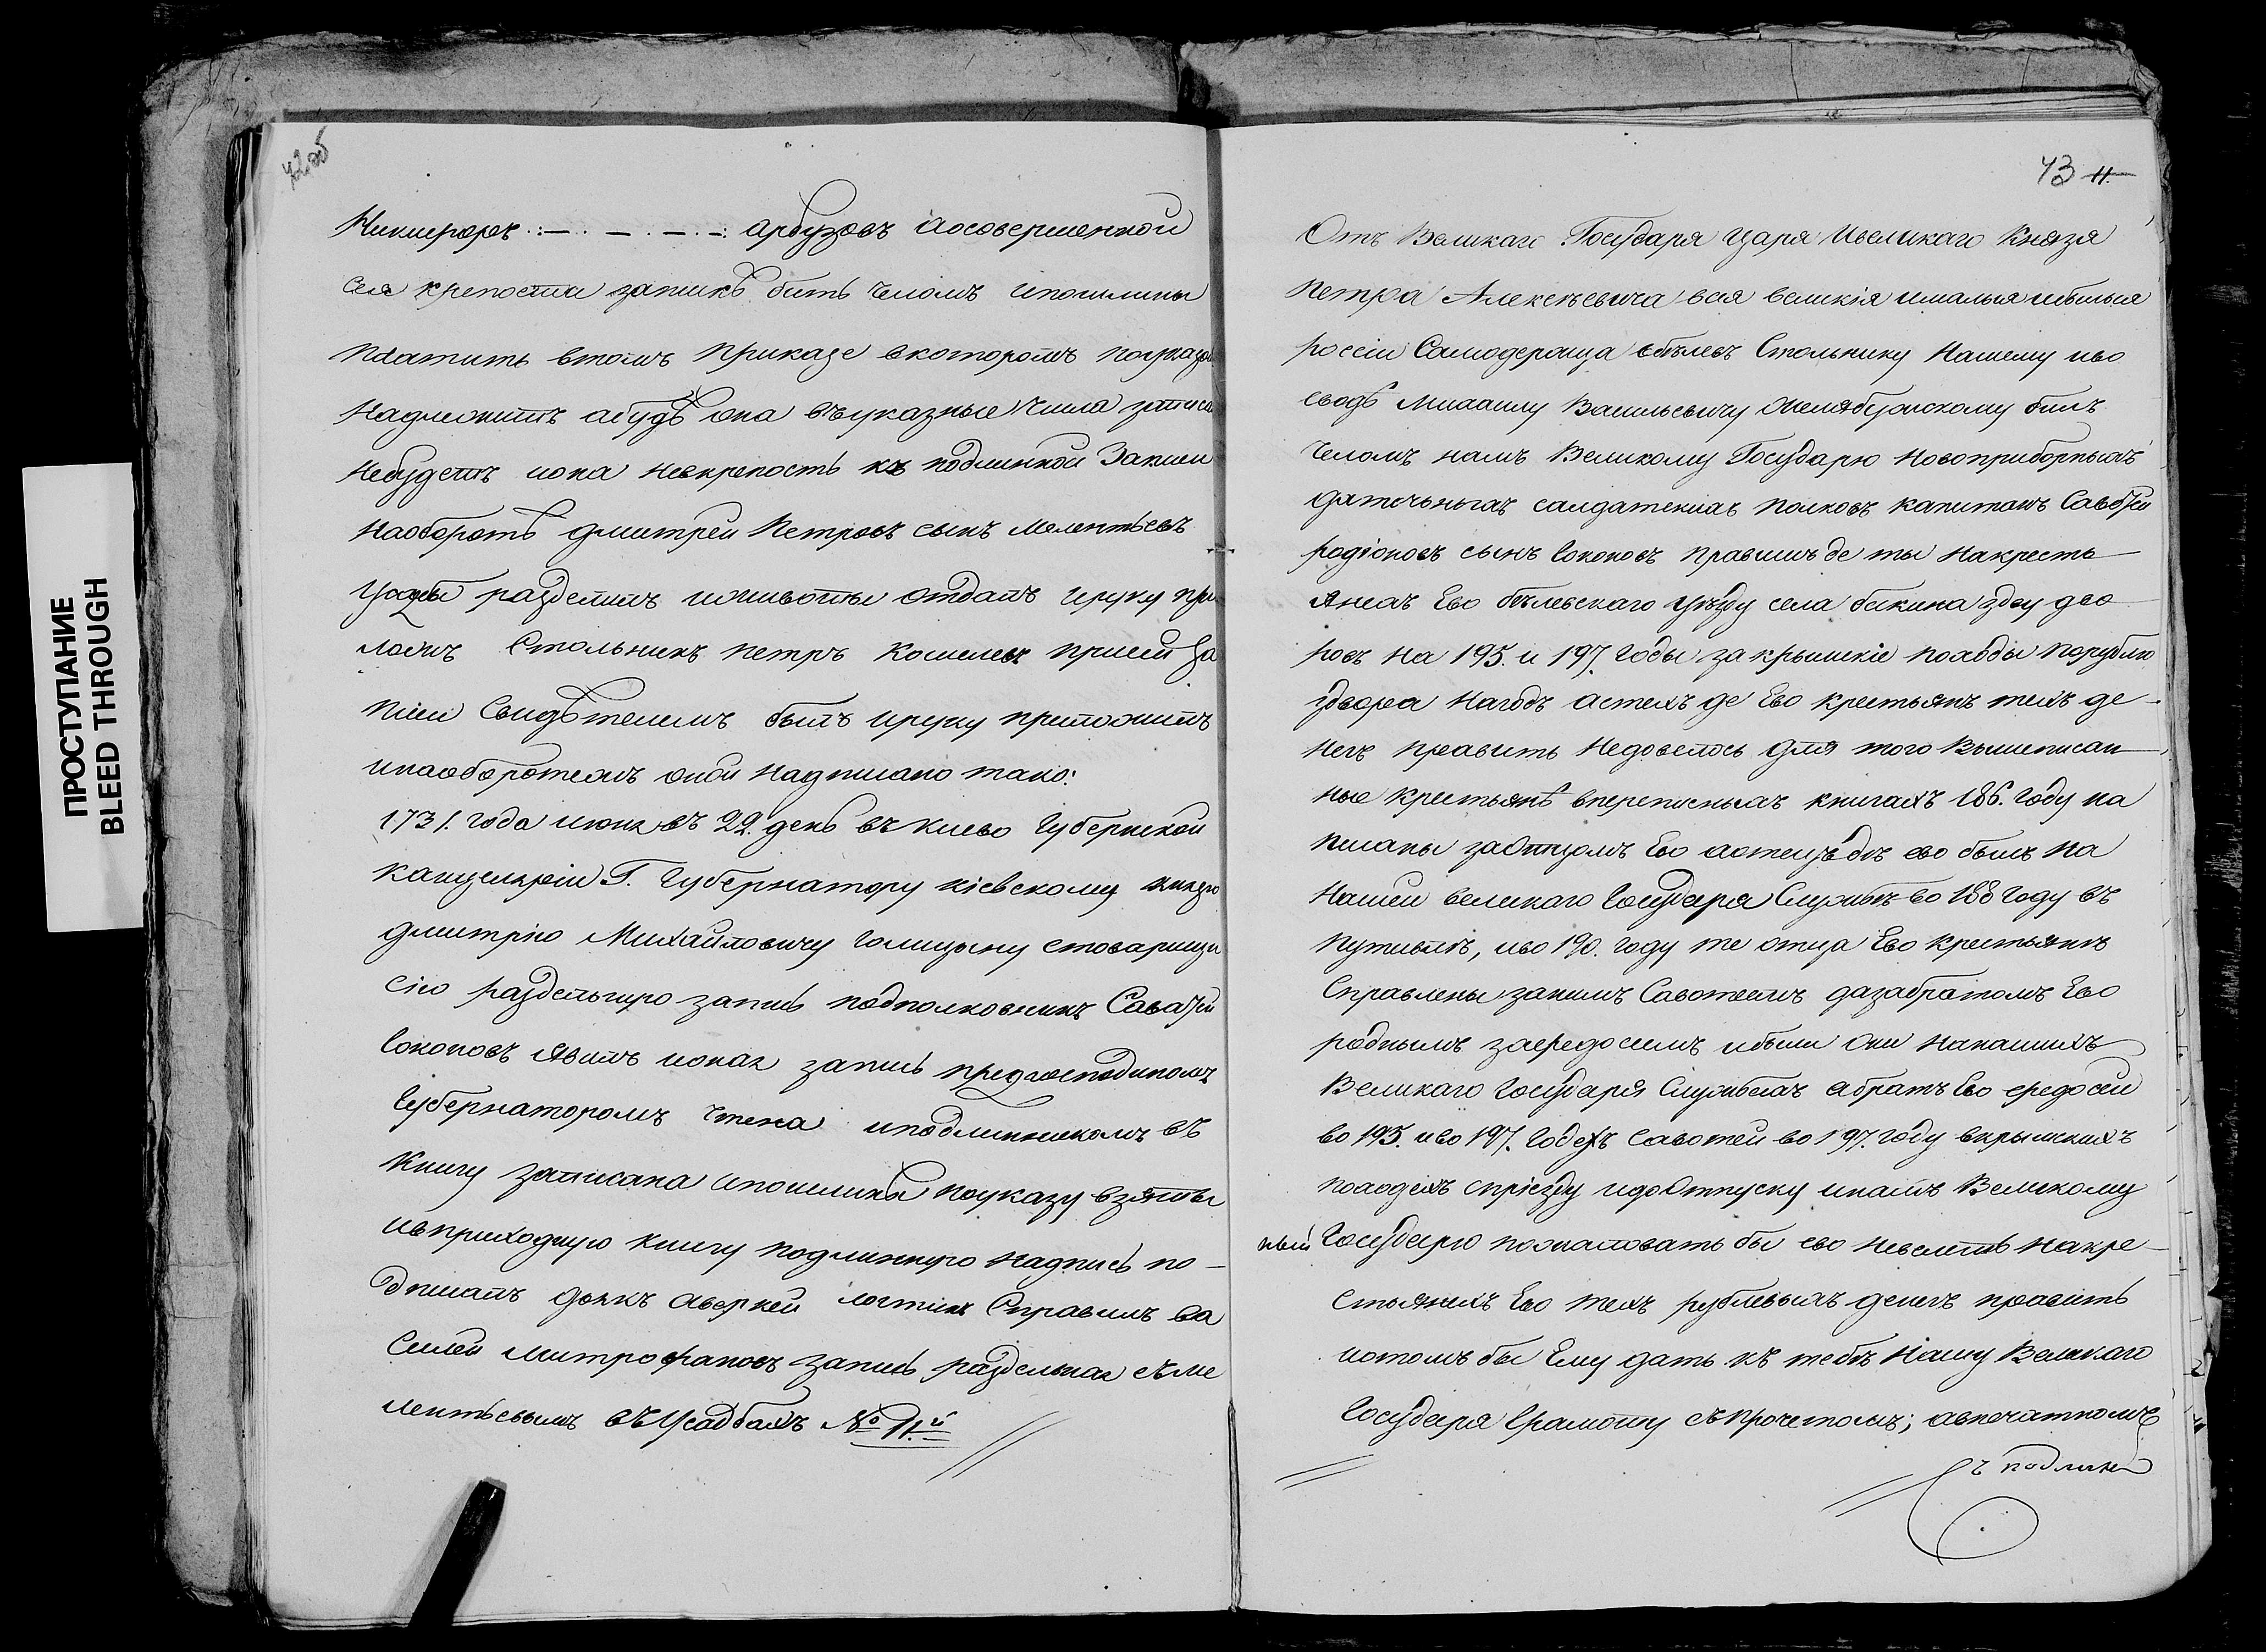 ПРОСТУПАНИЕ
BLEED THROUGH
42об
Никифоръ арбузовъ аосовершенной
сея крепости запискѣ бить челомъ ипошлины
платить втомъ приказе вкоторомъ поуказу
надлежитъ абудѣ она въуказные числа записа
небудетъ иона невкрепость къ подлинной Записи
наоборотѣ дмитрей Петровъ сынъ мелентьевъ
усадбы разделилъ иживоты отдалъ ируку при
ложилъ Стольникъ петръ кошелевъ присей За
писи Свидѣтелемъ былъ ируку приложилъ
инаоборотеамъ оной надписано тако:
1731. года июня въ 22. день въ киево Губернской
канцеляріи Г. Губернатору кіевскому князю
дмитрію Михайловичу Голицыну стоварищи
Сію раздельную запись подполковникъ Саватѣй
Соконовъ явилъ ионая запись предгосподиномъ
Губернаторомъ чтена иподлинникомъ въ
книгу записана ипошлины поуказу взяты
ивприходную книгу подлинную надпись по-
дписалъ дьякъ аверкей Справилъ ва
силей митрофановъ запись раздельная съме
лентьевымъ въ Усадбахъ № 11.й
43 11.
Отъ Великаго Государя царя Ивеликаго Князя
Петра Алексѣевича всея великія ималыя ибѣлыя
россіи Самодержца вбѣлевъ Стольнику Нашему иво
еводѣ михаилу Васильевичу Желябужскому билъ
челомъ намъ Великому Государю новоприборныхъ
даточныхъ салдатскихъ полковъ капитанъ Савотѣй
родіоновъ сынъ Соконовъ правишъ де ты накресть
янехъ Ево бѣлевскаго уѣзду села бакина здву дво
ровъ на 195. и 197. годы закрымскіе походы порублю
здвора нагодъ астехъ де Ево крестьянъ техъ де-
негъ править недовелось для того вышеписан
ные крестьянѣ впереписныхъ книгахъ 186. году на
писаны заотцомъ Ево аотецъ де ево былъ на
нашей великаго Государя Службѣ во 188 году въ
путивлѣ, иво 190. году те отца Ево крестьянъ
Справлены занимъ Савотеемъ дазабратомъ Ево
роднымъ заередосеемъ ибыли они нанашихъ
Великаго Государя Службахъ абратъ Ево ередосей
во 195. иво 197. Годехъ савотей во 197. году вкрымскихъ
походехъ спріезду идоотпуску инамъ Великому
ный Государю пожаловать бы ево невелеть накре-
стьянехъ Ево техъ рублевыхъ денегъ править
иотомъ бы Ему дать къ тебѣ Нашу Великаго
Государя Грамоту съпрочетомъ; авпечатномъ
Съ подлин